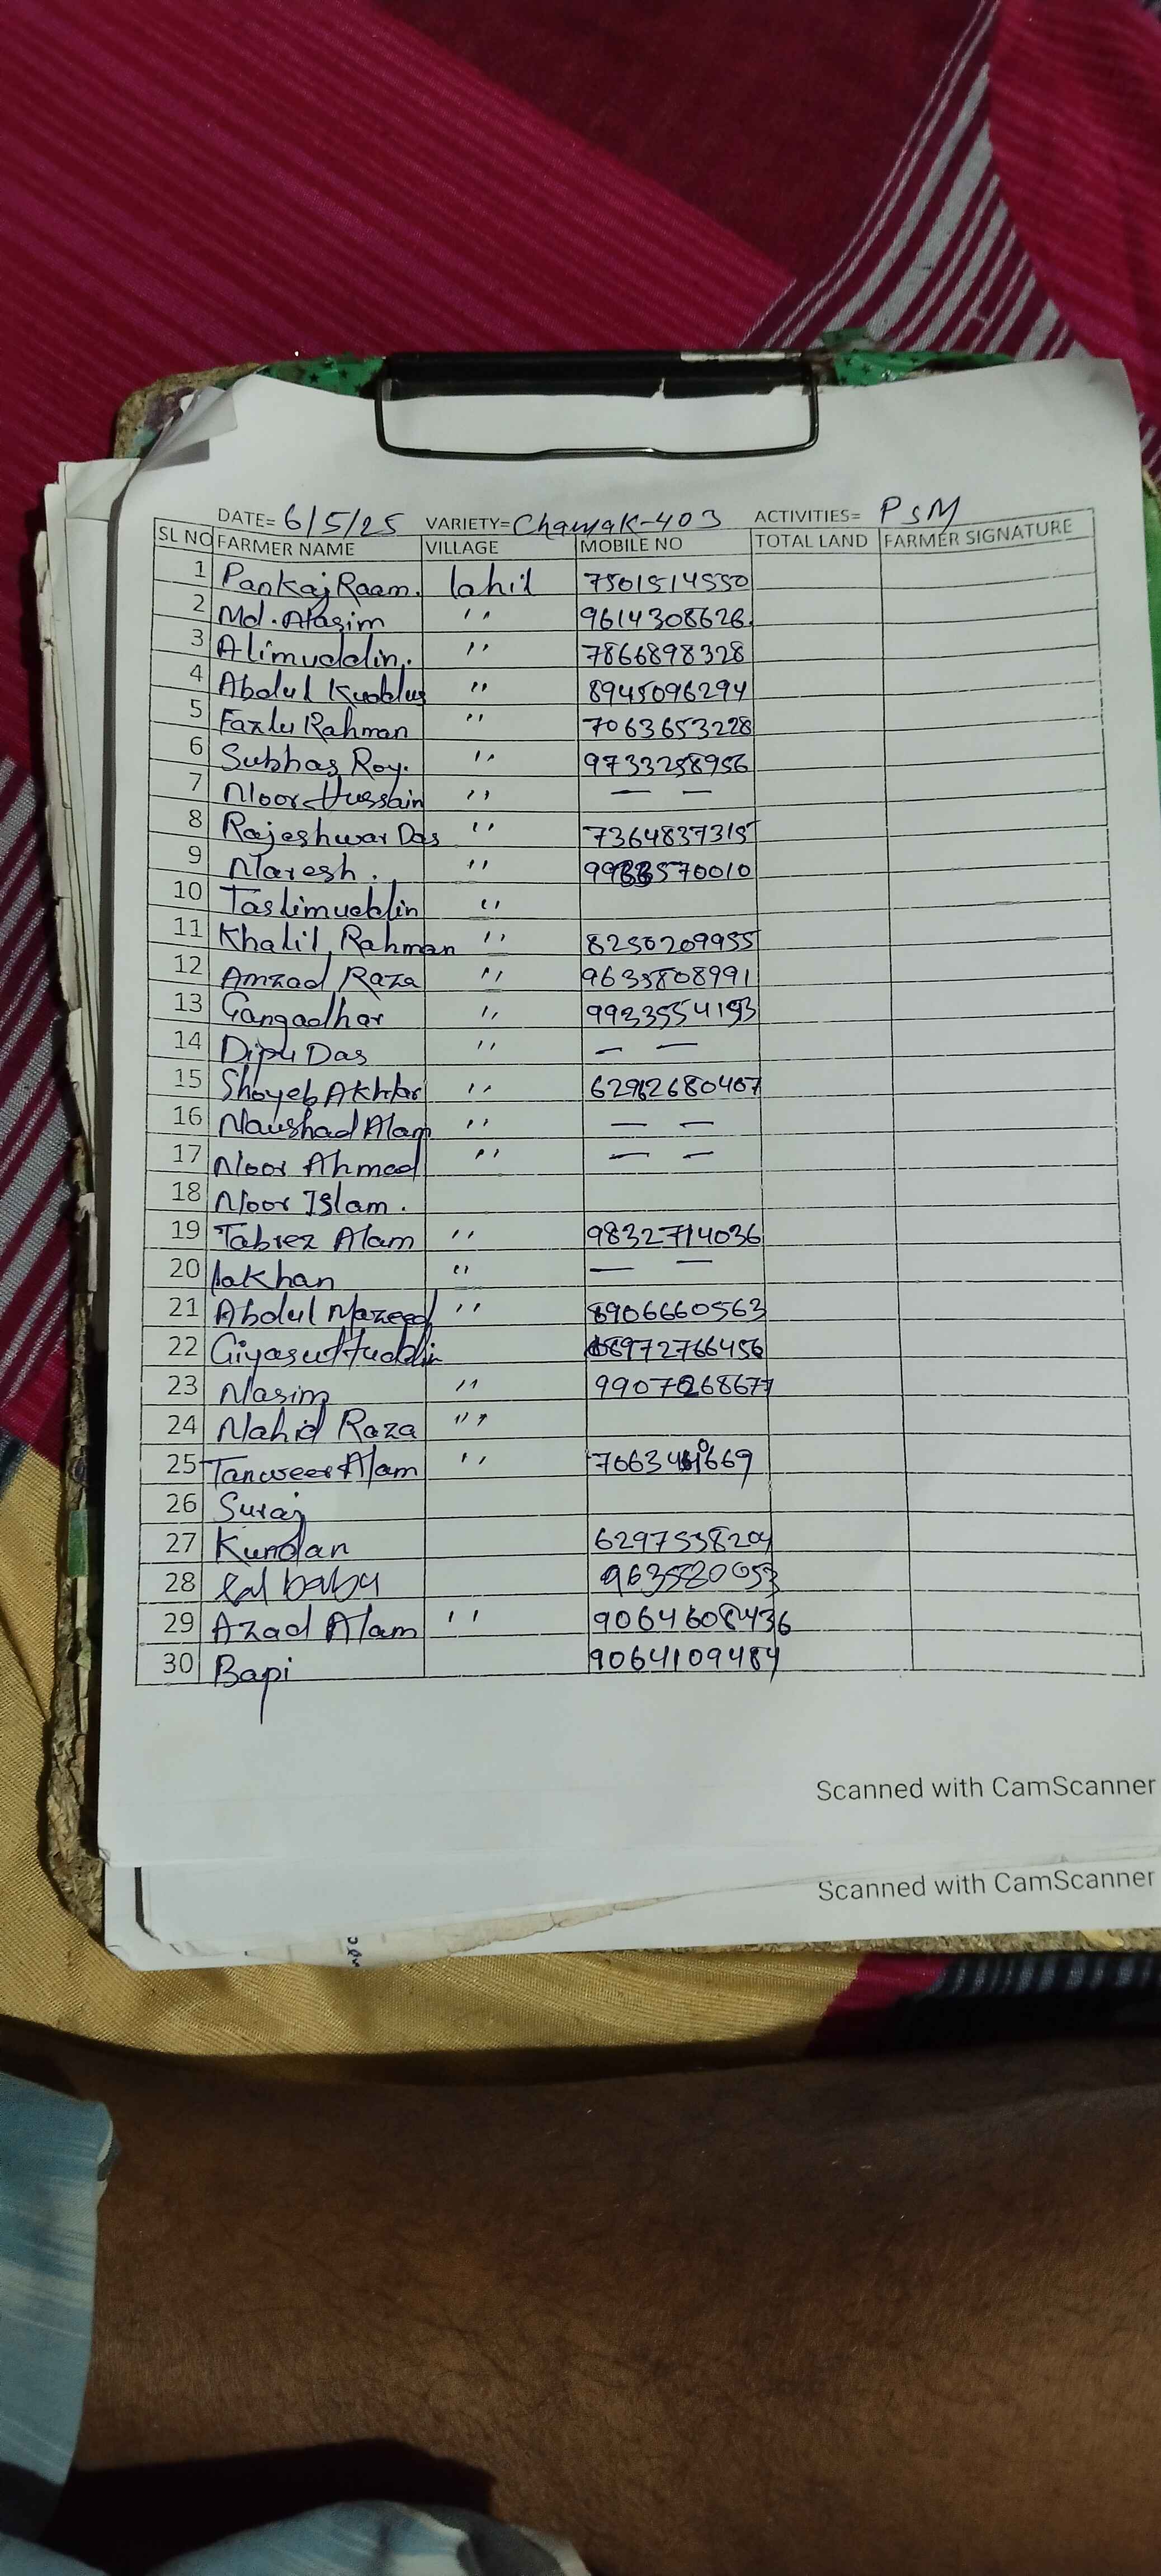 DATE= 6/5/25 VARIETY= Chamak-403 ACTIVITIES= PSM
SL NO FARMER NAME VILLAGE MOBILE NO TOTAL LAND FARMER SIGNATURE
1 Pankaj Raam. lahil 7501514550
2 Md. Atasim " 9614308628
3 Alimuddin. " 7866898328
4 Abdul Kuddus " 8945096294
5 Fazlu Rahman " 7063653228
6 Subhas Roy. " 9733258956
7 Noor Hussain " — —
8 Rajeshwar Das " 7364837315
9 Naresh. "
10 Taslimuddin "
11 Khalil Rahman " 8250209955
12 Amzad Raza " 9635808991
13 Gangadhar "
14 Dipu Das " — —
15 Shoyeb Akhtar "
16 Naushad Alam " — —
17 Noor Ahmed " — —
18 Noor Islam.
19 Tabrez Alam " 9832714036
20 lakhan " — —
21 Abdul Mazeed " 8906660563
22 8972766456
23 Nasim "
24 Nahid Raza "
25 Tanweer Alam "
26 Suraj
27 Kundan 6297538204
28 lal babu
29 Azad Alam " 9064608436
30 Bapi 9064109484
Scanned with CamScanner
Scanned with CamScanner